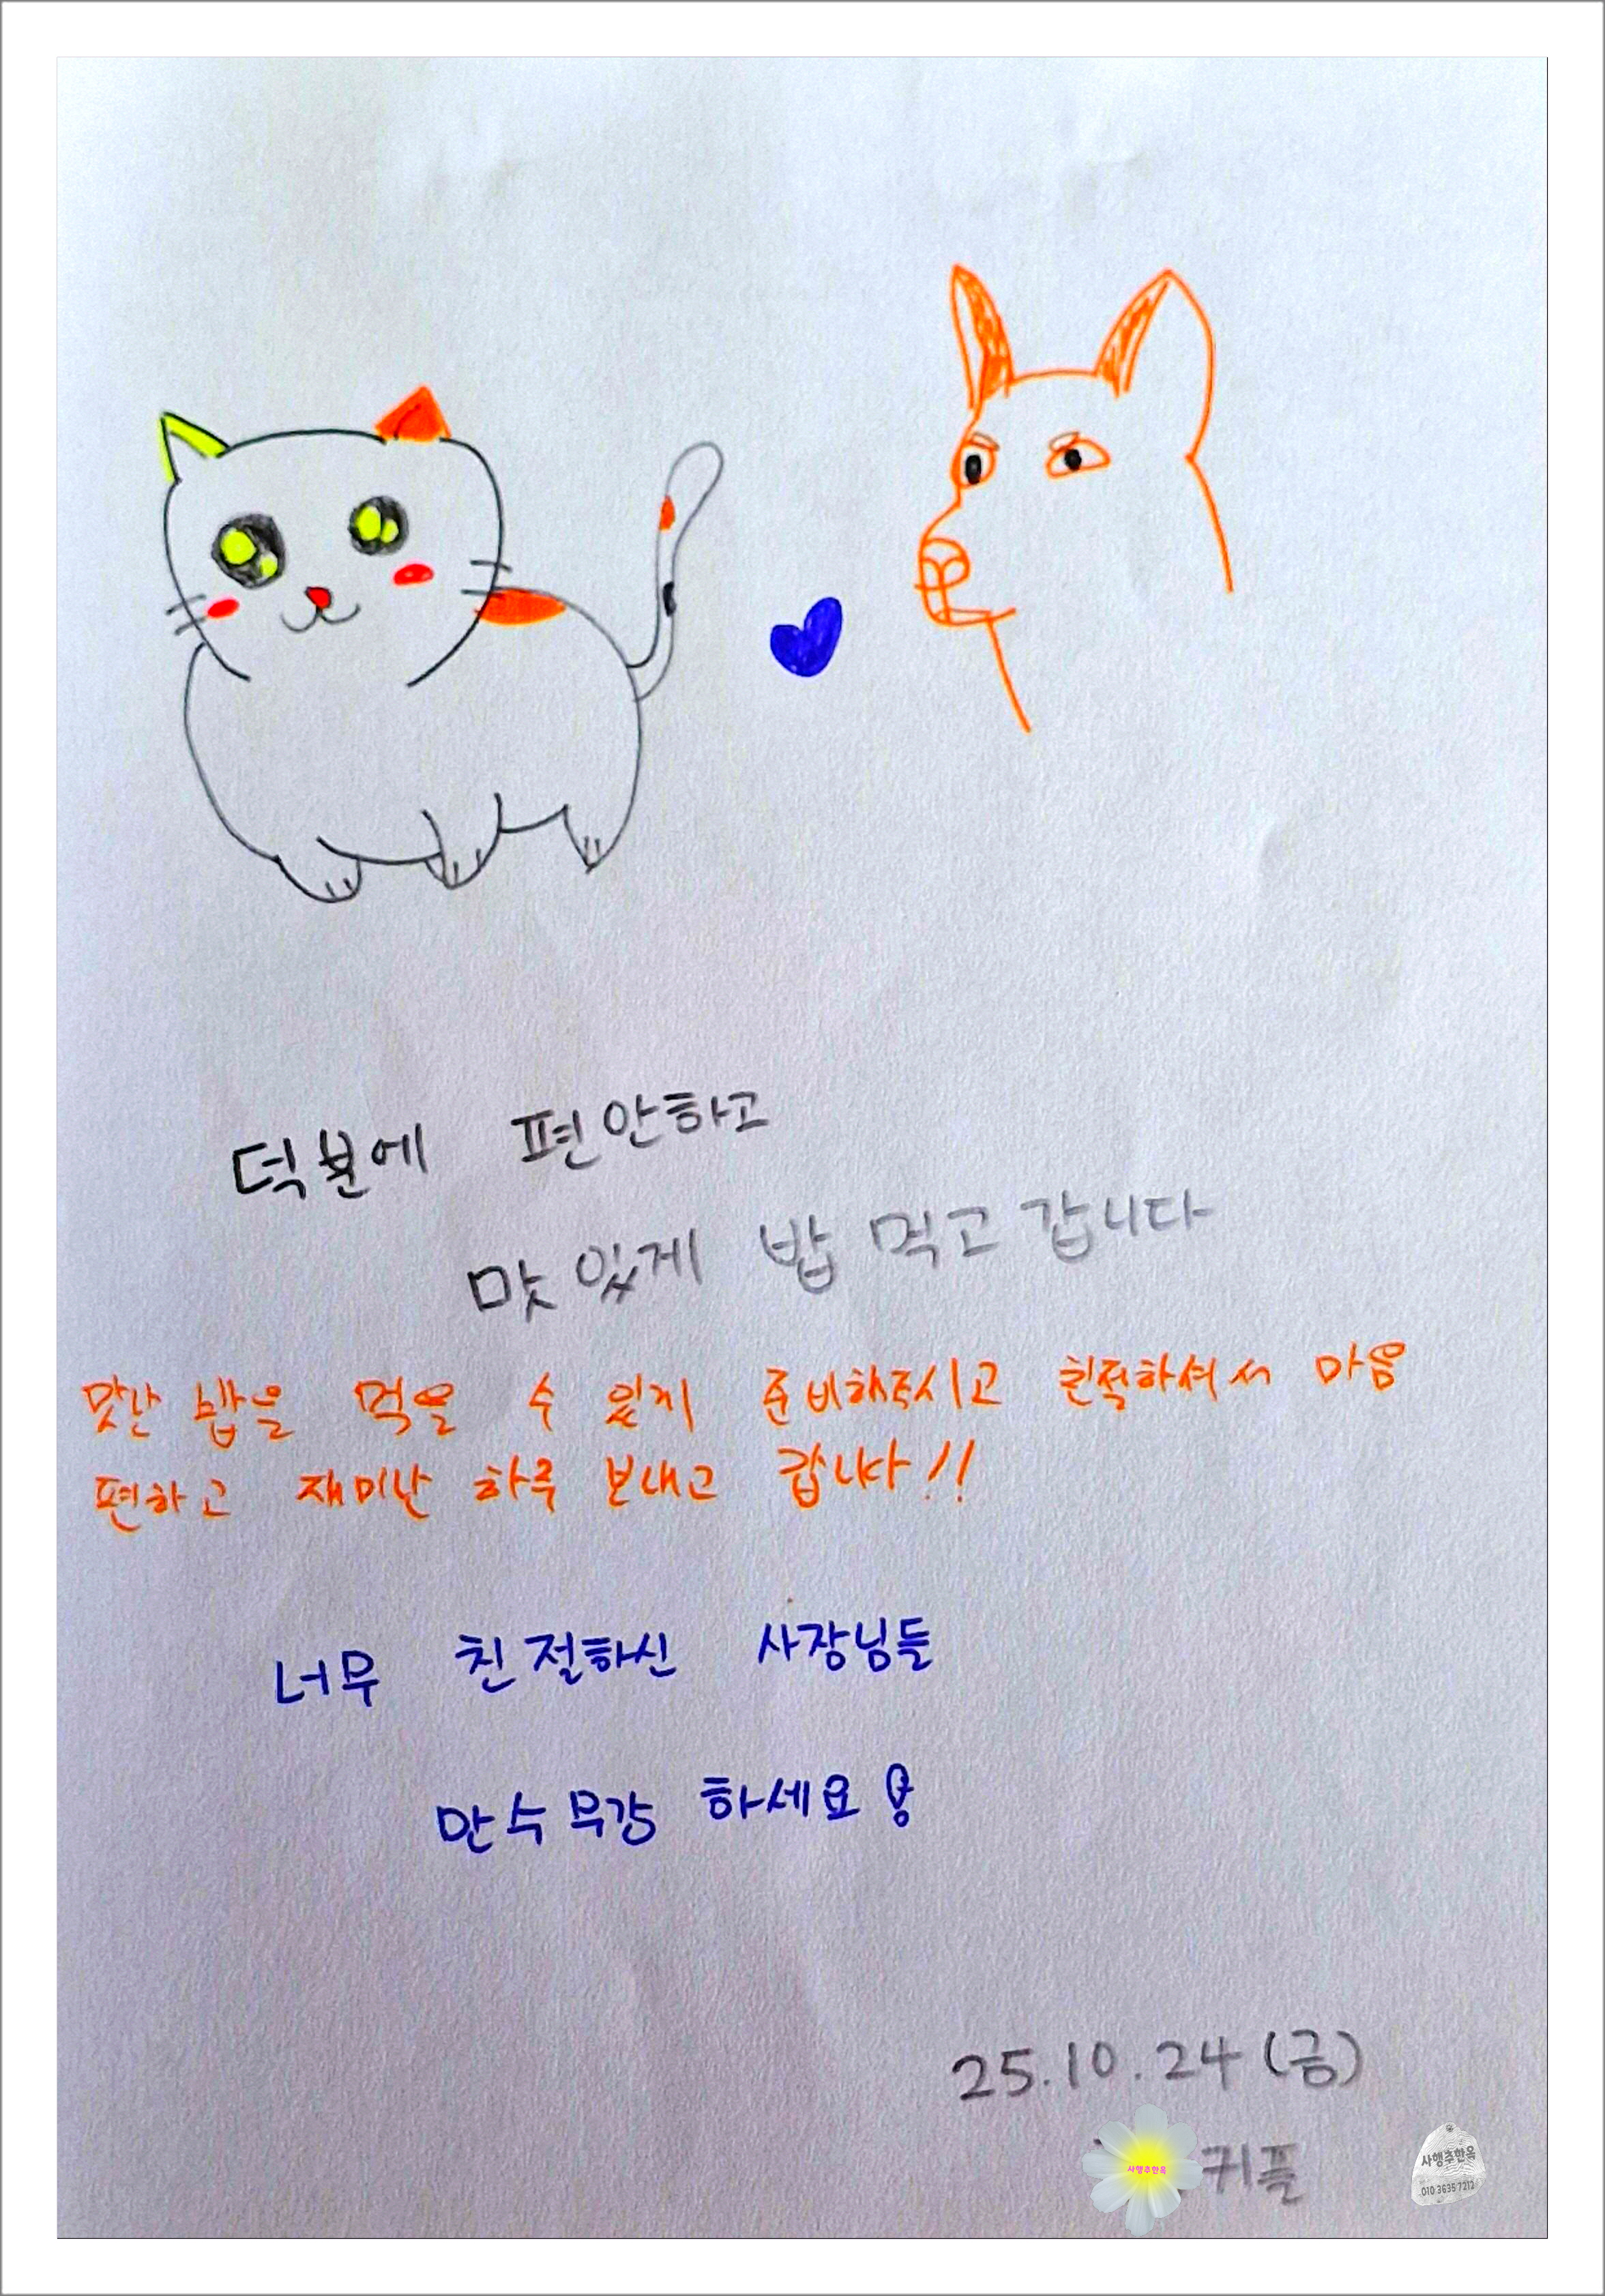 덕분에 편안하고
맛있게 밥 먹고 갑니다
맛난 밥을 먹을 수 있게 준비해주시고 친절하셔서 마음
편하고 재미난 하루 보내고 갑니다!!
너무 친절하신 사장님들
만수무강 하세요
25.10.24(금)
사행추한옥
커플
사행추한옥
010 3635 7212